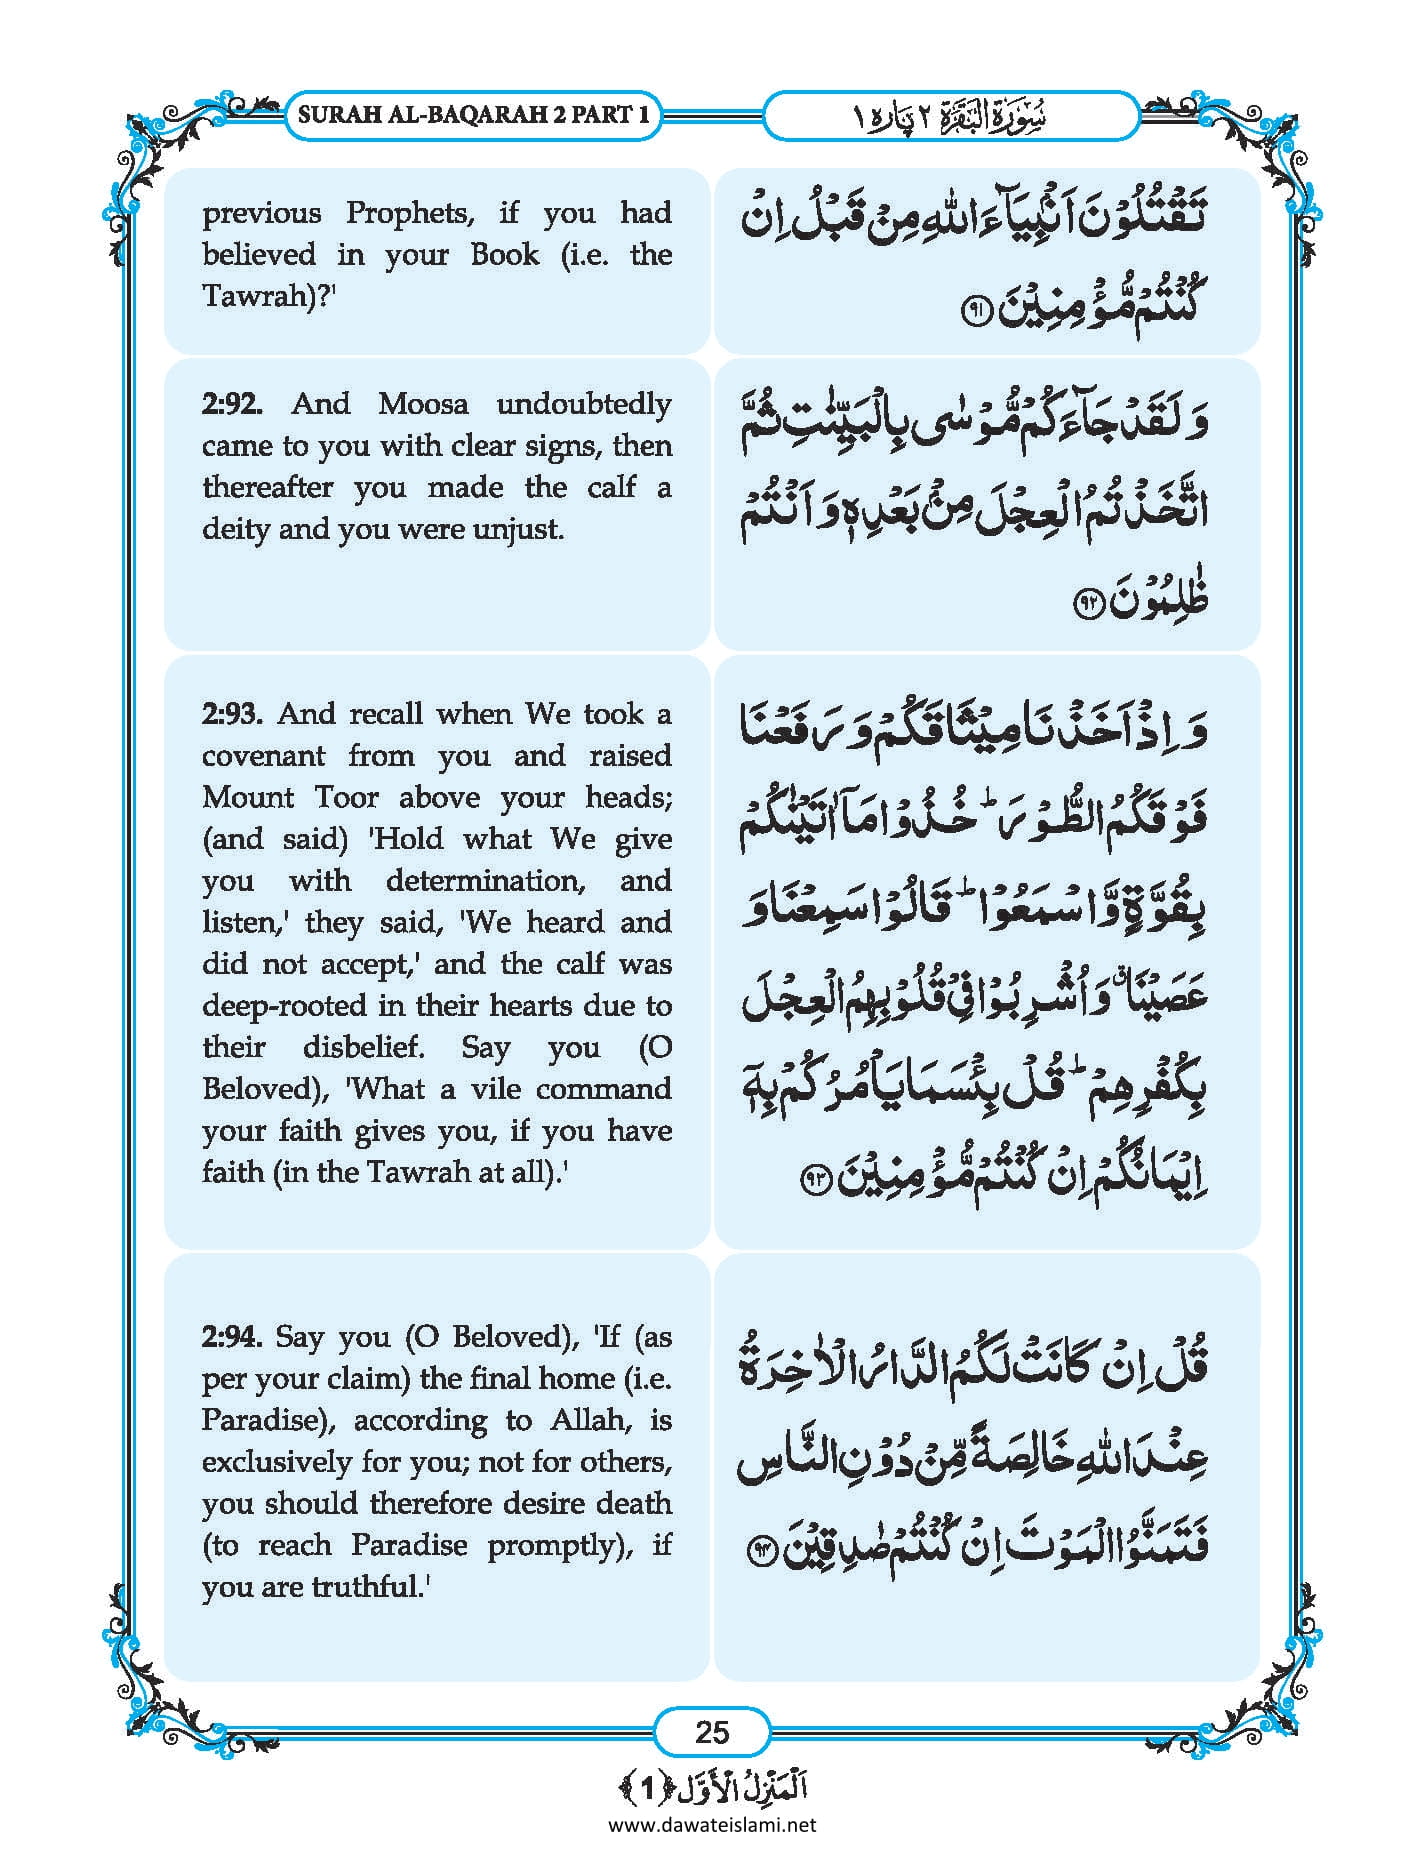 SURAH AL-BAQARAH 2 PART 1
سُوْرَۃُ الْبَقَرَۃِ ٢ پارہ ١
previous Prophets, if you had
believed in your Book (i.e. the
Tawrah)?'
تَقْتُلُوْنَ اَنْۢبِیَآءَ اللہِ مِنْ قَبْلُ اِنْ
كُنْتُمْ مُّؤْمِنِیْنَ ﴿۹۱﴾
2:92. And Moosa undoubtedly
came to you with clear signs, then
thereafter you made the calf a
deity and you were unjust.
وَ لَقَدْ جَآءَكُمْ مُّوْسٰی بِالْبَیِّنٰتِ ثُمَّ
اتَّخَذْتُمُ الْعِجْلَ مِنْۢ بَعْدِهٖ وَ اَنْتُمْ
ظٰلِمُوْنَ ﴿۹۲﴾
2:93. And recall when We took a
covenant from you and raised
Mount Toor above your heads;
(and said) 'Hold what We give
you with determination, and
listen,' they said, 'We heard and
did not accept,' and the calf was
deep-rooted in their hearts due to
their disbelief. Say you (O
Beloved), 'What a vile command
your faith gives you, if you have
faith (in the Tawrah at all).'
وَ اِذْ اَخَذْنَا مِیْثَاقَكُمْ وَ رَفَعْنَا
فَوْقَكُمُ الطُّوْرَ ؕ خُذُوْا مَاۤ اٰتَیْنٰكُمْ
بِقُوَّةٍ وَّ اسْمَعُوْا ؕ قَالُوْا سَمِعْنَا وَ
عَصَیْنَا ۗ وَ اُشْرِبُوْا فِیْ قُلُوْبِهِمُ الْعِجْلَ
بِكُفْرِهِمْ ؕ قُلْ بِئْسَمَا یَاْمُرُكُمْ بِهٖۤ
اِیْمَانُكُمْ اِنْ كُنْتُمْ مُّؤْمِنِیْنَ ﴿۹۳﴾
2:94. Say you (O Beloved), 'If (as
per your claim) the final home (i.e.
Paradise), according to Allah, is
exclusively for you; not for others,
you should therefore desire death
(to reach Paradise promptly), if
you are truthful.'
قُلْ اِنْ كَانَتْ لَكُمُ الدَّارُ الْاٰخِرَةُ
عِنْدَ اللہِ خَالِصَةً مِّنْ دُوْنِ النَّاسِ
فَتَمَنَّوُا الْمَوْتَ اِنْ كُنْتُمْ صٰدِقِیْنَ ﴿۹۴﴾
25
اَلْمَنْزِلُ الْاَوَّل ﴿1﴾
www.dawateislami.net